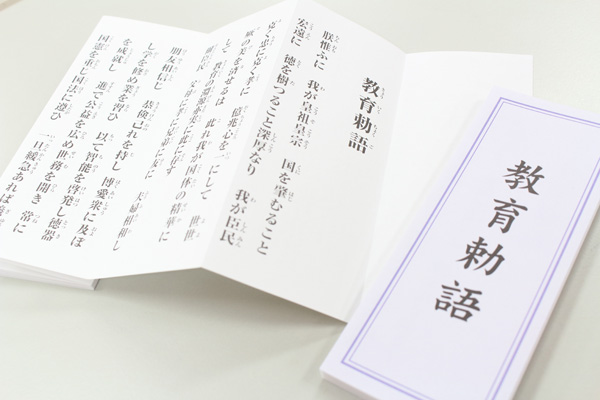 教育勅語
朕惟ふに 我が皇祖皇宗 国を肇むること
宏遠に 徳を樹つること深厚なり 我が臣民
克く忠に克く孝に 億兆心を一にして 世世
厥の美を済せるは 此れ我が国体の精華に
して 教育の淵源亦実に此に存す
爾臣民 父母に孝に 兄弟に友に 夫婦相和し
朋友相信し 恭倹己れを持し 博愛衆に及ぼ
し学を修め業を習ひ 以て智能を啓発し徳器
を成就し 進で公益を広め世務を開き 常に
国憲を重じ国法に遵ひ 一旦緩急あれば義
教育勅語